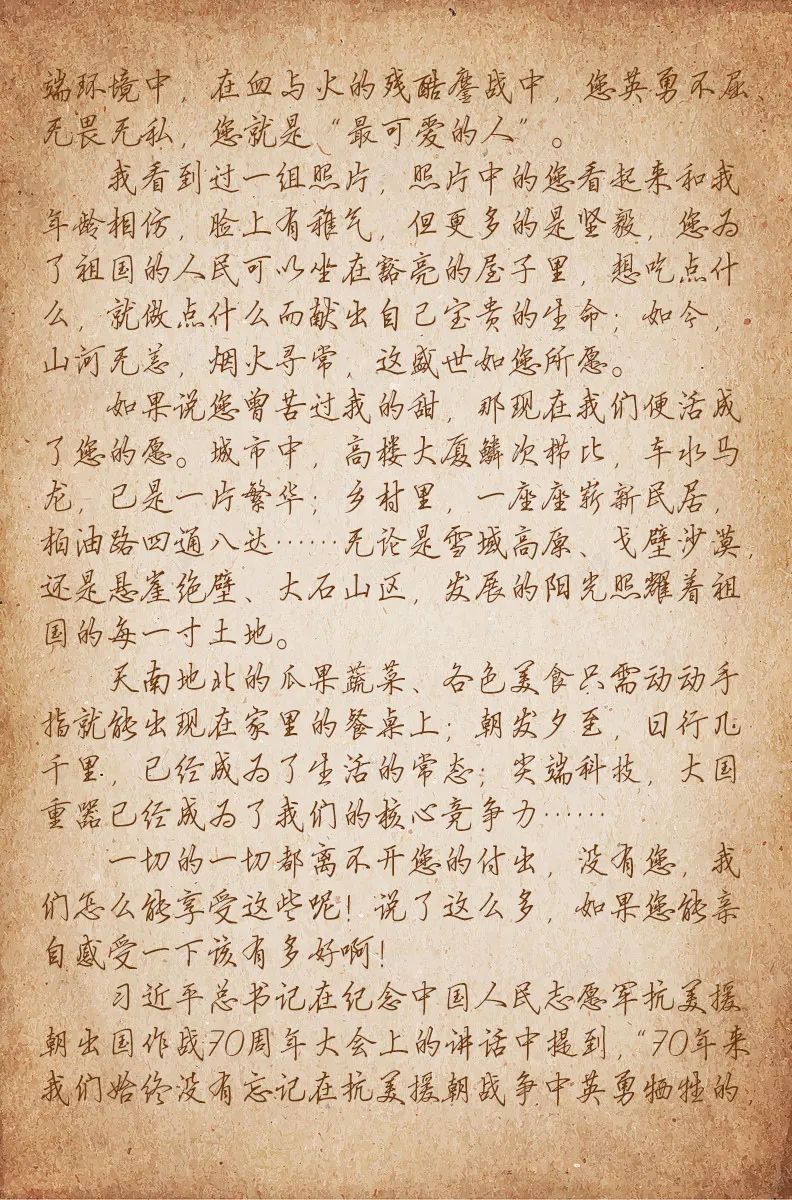 端环境中，在血与火的残酷鏖战中，您英勇不屈、
无畏无私，您就是“最可爱的人”。
我看到过一组照片，照片中的您看起来和我
年龄相仿，脸上有稚气，但更多的是坚毅，您为
了祖国的人民可以坐在豁亮的屋子里，想吃点什
么，就做点什么而献出自己宝贵的生命；如今，
山河无恙，烟火寻常，这盛世如您所愿。
如果说您曾苦过我的甜，那现在我们便活成
了您的愿。城市中，高楼大厦鳞次栉比，车水马
龙，已是一片繁华；乡村里，一座座崭新民居，
柏油路四通八达……无论是雪域高原、戈壁沙漠，
还是悬崖绝壁、大石山区，发展的阳光照耀着祖
国的每一寸土地。
天南地北的瓜果蔬菜、各色美食只需动动手
指就能出现在家里的餐桌上；朝发夕至，日行几
千里，已经成为了生活的常态；尖端科技，大国
重器已经成为了我们的核心竞争力……
一切的一切都离不开您的付出，没有您，我
们怎么能享受这些呢！说了这么多，如果您能亲
自感受一下该有多好啊！
习近平总书记在纪念中国人民志愿军抗美援
朝出国作战70周年大会上的讲话中提到，“70年来
我们始终没有忘记在抗美援朝战争中英勇牺牲的，